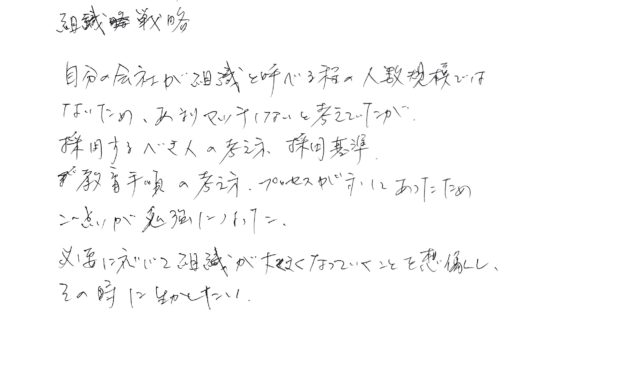 組織戦略
自分の会社が組織と呼べる程の人数規模では
ないため、あまりマッチしないと考えていたが、
採用するべき人の考え方、採用基準
教育手順の考え方、プロセスが
あったため
点が勉強になった。
必要に応じて組織が大きくなっていくことを想像し、
その時に生かしたい。